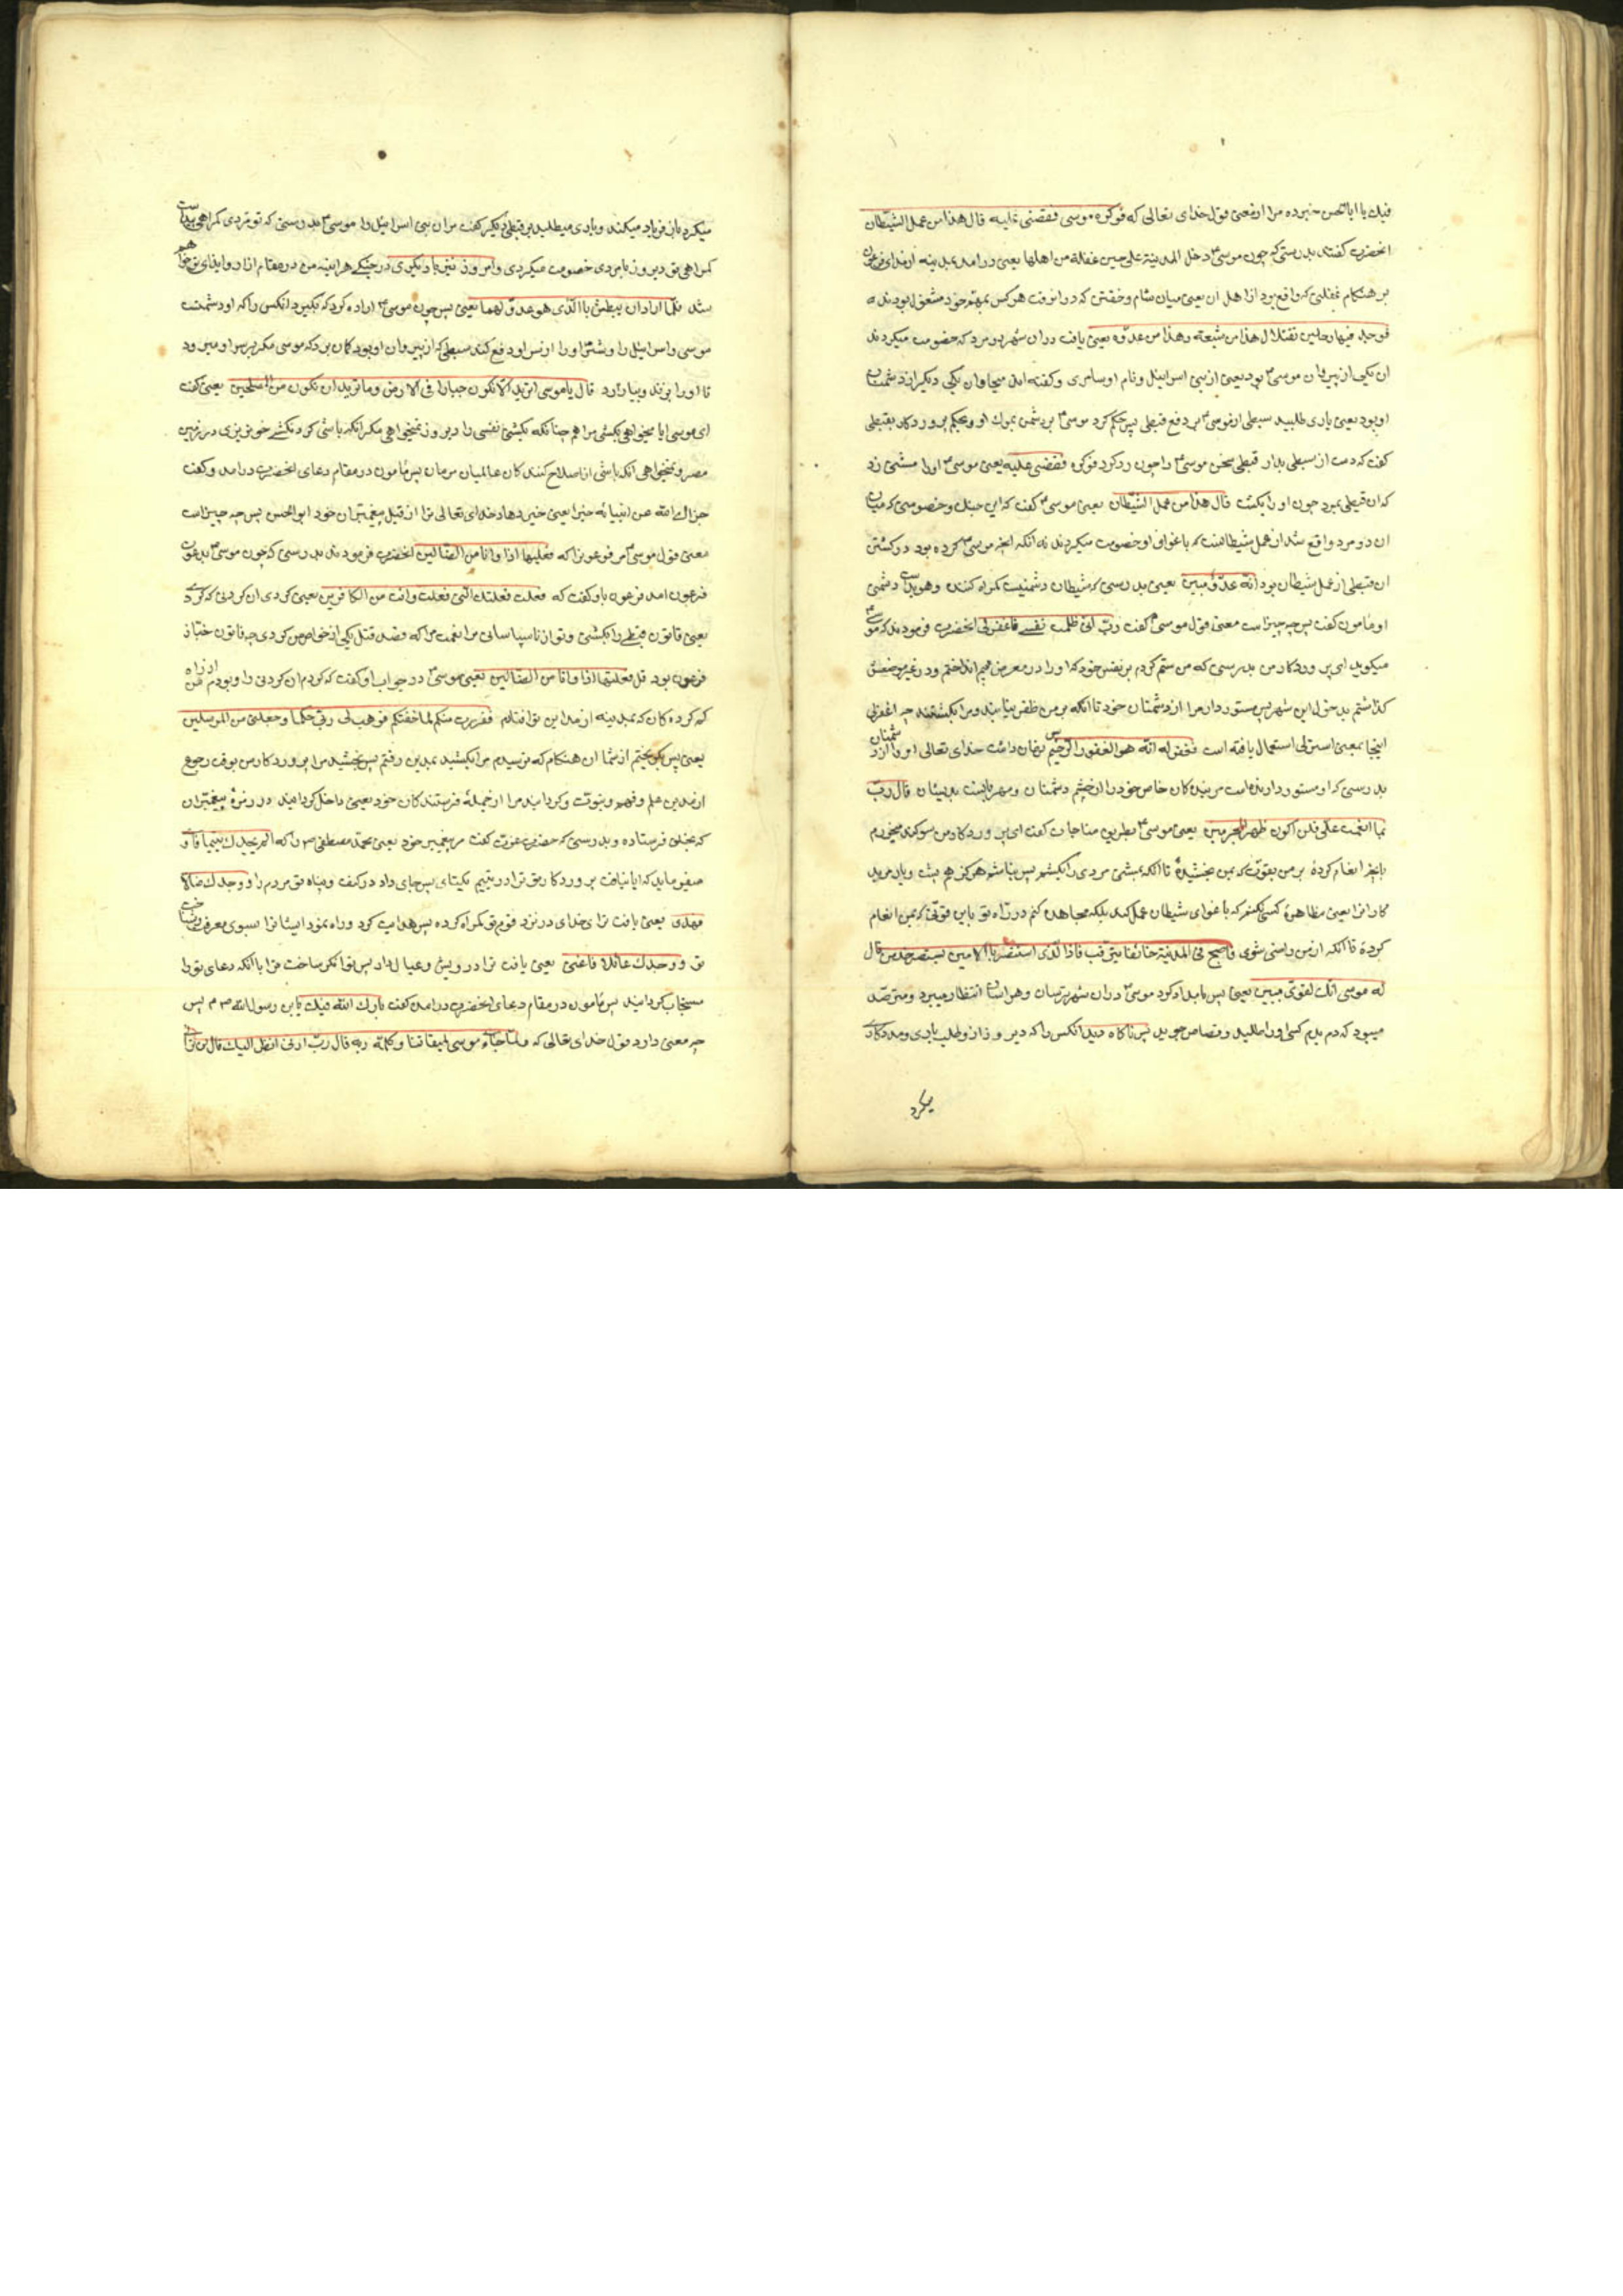 فیك یا اباالحسن خبر ده مرا از معنی قول خدای تعالی که فوکزه موسی فقضی علیه قال هذا من عمل الشیطان
انحضرت کفتند بدرستی که چون موسی ع دخل المدینة علی حین غفلة من اهلها یعنی درامد بمدینه از مداین فرعون
بر هنکام غفلتی که واقع بود از اهل آن یعنی میان شام و خفتن که دران وقت هرکس بمهم خود مشغول بودند
فوجد فیها رجلین یقتتلان هذا من شیعته وهذا من عدوه یعنی یافت دران شهر دو مرد که خصومت میکردند
ان یکی از پیروان موسی ع بود یعنی از بنی اسرائیل و نام او سامری و کفته اند میخا وان یکی دیکر از دشمنان
او بود یعنی یاری طلبید سبطی از موسی ع بر دفع قبطی پس حکم کرد موسی ع بر دشمن بموت او و بحکم پروردکار بقبطی
کفت که دست از سبطی بدار قبطی سخن موسی ع را چون رد کرد فوکزه فقضی علیه یعنی موسی ع اورا مشتی زد
که ان قبطی بمرد چون او را بکشت قال هذا من عمل الشیطان یعنی موسی ع کفت که این جنك و خصومتی که میان
ان دو مرد واقع شد از عمل شیطانست که باغوای او خصومت میکردند نه انکه انچه موسی ع کرده بود در کشتن
ان قبطی از عمل شیطان بود انه عدو مضل مبین یعنی بدرستی که شیطان دشمنیست کمراه کننده و هویداست دشمنی
او مامون کفت پس چه چیز است معنی قول موسی ع کفت رب انی ظلمت نفسی فاغفر لی انحضرت فرمودند که موسی ع
میکوید ای پروردکار من بدرستی که من ستم کردم بر نفس خود که او را در معرض بیم انداختم و در غیر موضعش
کذاشتم بدخول این شهر پس مستور دار مرا از دشمنان خود تا انکه بر من ظفر نیابند و مرا نکشند چه اغفرلی
اینجا بمعنی استر لی استعمال یافته است فغفر له انه هو الغفور الرحیم پس پنهان داشت خدای تعالی او را از دشمنان
بدرستی که او مستور دارنده است مر بندکان خاص خود را از خشم دشمنان و مهربانست بدیشان قال رب
بما انعمت علی فلن اکون ظهیرا للمجرمین یعنی موسی ع بطریق مناجات کفت ای پروردکار من سوکند میخورم
بانچه انعام کردهٔ بر من بقوتی که بمن بخشیدهٔ تا انکه بمشتی مردی را بکشم پس نباشم هرکز هم پشت و یار مر بد
کارانرا یعنی مظاهرهٔ کسی نکنم که باغوای شیطان عمل کند بلکه مجاهده کنم در راه تو باین قوتی که بمن انعام
کردهٔ تا انکه از من راضی شوی فاصبح فی المدینة خائفا یترقب فاذا الذی استنصره بالامس یستصرخه قال
له موسی انك لغوی مبین یعنی پس بامداد کرد موسی ع دران شهر ترسان و هراسان انتظار میبرد و مترصد
میبود که دم بدم کسی او را طلبد و قصاص جوید پس ناکاه دید انکس را که دیروز ازو طلب یاری و مددکاری
میکرد
میکرد باز فریاد میکند و یاری میطلبد بر قبطی دیکر کفت مر ان بنی اسرائیل را موسی ع بدرستی که تو مردی کمراهی پیداست
کمراهی تو دیروز با مردی خصومت میکردی و امروز نیز با دیکری در جنکی هراینه من در مقام ازار و ایذای تو خواهم
شد فلما اراد ان یبطش بالذی هو عدو لهما یعنی پس چون موسی ع اراده کرد که بکیرد انکس را که او دشمنست
موسی و اسرائیل را و شر او را ازو دفع کند سبطی که از پیروان او بود کمان برد که موسی مکر بر سر او میرود
تا او را بزند و بیازارد قال یا موسی اترید ان تقتلنی الا ان تکون جبارا فی الارض وما ترید ان تکون من المصلحین یعنی کفت
ای موسی ایا میخواهی بکشی مرا هم چنانکه بکشتی نفسی را دیروز نمیخواهی مکر انکه باشی کردنکشی خونریزی در زمین
مصر و نمیخواهی انکه باشی از اصلاح کنندکان عالمیان مرمان پس مامون در مقام دعای انحضرت درامد و کفت
جزاك الله عن انبیائه خیرا یعنی خیر دهاد خدای تعالی ترا از قبل پیغمبران خود ابوالحسن پس چه چیز است
معنی قول موسی ع مر فرعونرا که فعلتها اذا وانا من الضالین انحضرت فرمودند بدرستی که چون موسی ع بدعوت
فرعون امد فرعون باو کفت که فعلت فعلتك التی فعلت وانت من الکافرین یعنی کردی ان کردنی که کردی
یعنی قانون قبطی را بکشتی و تو از ناسپاسانی مر انعمت مرا که قصد قتل یکی از خواص من کردی چه قانون خباز
فرعون بود قال فعلتها اذا وانا من الضالین یعنی موسی ع در جواب او کفت که کردم ان کردنی را و بودم من از راه
کم کرده کان که بمدینه از مداین تو افتادم ففررت منکم لما خفتکم فوهب لی ربی حکما وجعلنی من المرسلین
یعنی پس بکریختم از شما ان هنکام که ترسیدم مرا بکشید بمدین رفتم پس بخشید مرا پروردکار من بوقت رجوع
از مدین علم و فهم و نبوت و کردانید مرا از جملهٔ فرستندکان خود یعنی داخل کردانید در زمرهٔ پیغمبران
که بخلق فرستاده و بدرستی که حضرت عزت کفت مر پیغمبر خود یعنی محمد مصطفی ص را که الم یجدك یتیما فاو
میفرماید که ایا نیافت پروردکار تو ترا در یتیم یکتای پس جای داد در کنف و پناه تو مردم را و وجدك ضالا
فهدی یعنی یافت ترا ی خدای در نزد قوم تو کمراه کرده پس هدایت کرد و راه نمود ایشانرا بسوی معرفت و شناخت
تو و وجدك عائلا فاغنی یعنی یافت ترا درویش و عیال دار پس توانکر ساخت ترا باانکه دعای تو را
مستجاب کردانید پس مامون در مقام دعای انحضرت درامد کفت بارك الله فیك یا بن رسول الله ص م پس
چه معنی دارد قول خدای تعالی که ولما جاء موسی لمیقاتنا وکلمه ربه قال رب ارنی انظر الیك قال لن ترانی